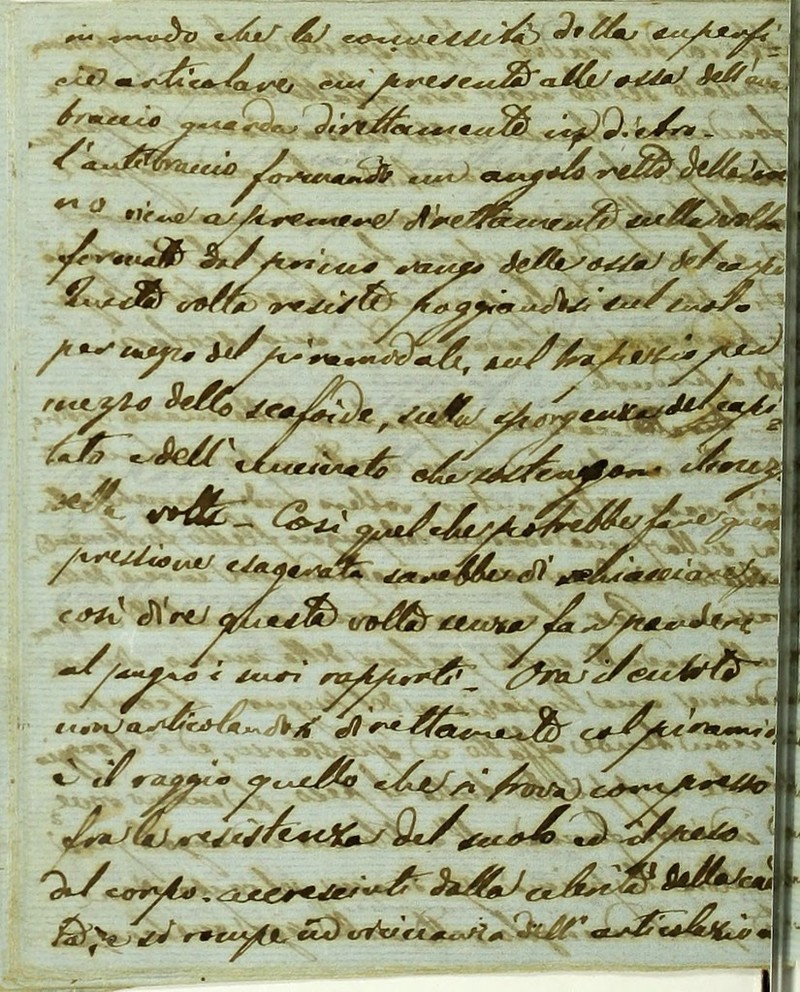 in modo che la convessità della superfi=
cie articolare cui presenta alle ossa dell'
braccio guarda direttamente in dietro.
l'antibraccio formando un angolo retto della
no viene a premere direttamente sulla volta
formata dal primo rango delle ossa del carpo
Questa volta resiste poggiandosi sul suolo
per mezzo del piramidale, sul trapezio per
mezzo dello scafoide, sulla sporgenza del capi=
tato e dell' uncinato che sostengono il mez
della volta – Così quel che potrebbe fare
pressione esagerata sarebbe di schiacciare
così dire questa volta senza far perdere
al pugno i suoi rapporti – Ora il cubito
non articolandosi direttamente col piramid
è il raggio quello che si trova compresso
fra la resistenza del suolo ed il peso
del corpo. accresciuto dalla celerità della ca
ta, e si rompe in vicinanza dell' articolazion